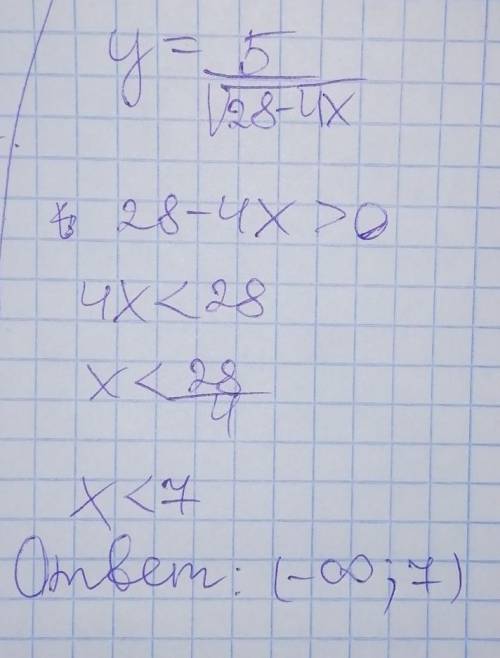 y = 5/√28-4x
28-4x > 0
4x < 28
x < 28/4
x < 7
Ответ: (-∞; 7)